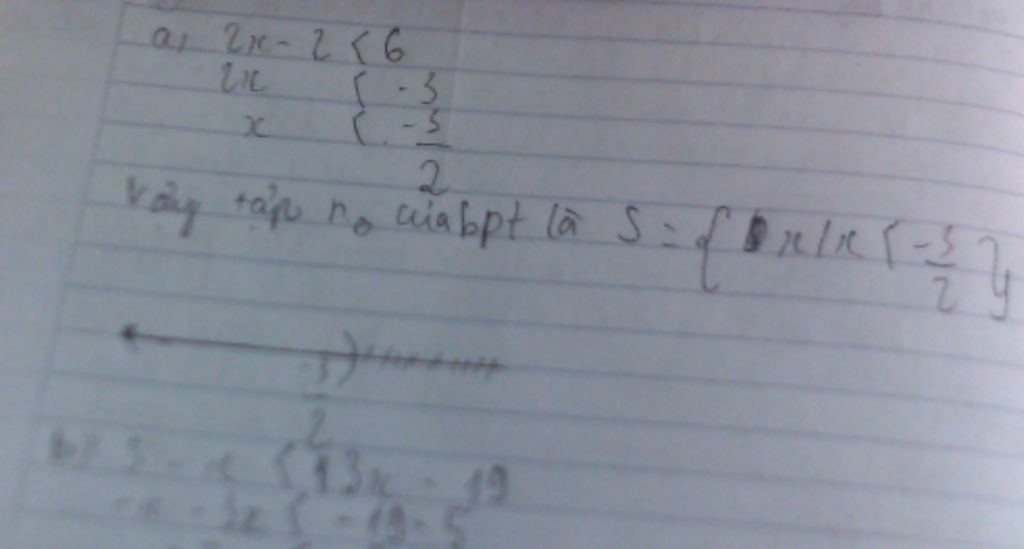 a, 2x - 2 < 6
2x < -3
x < -3/2
Vậy tập no của bpt là S = { x / x < -3/2 }
-3/2
b) 5 - x < 13x - 19
-x - 3x < -19 - 5